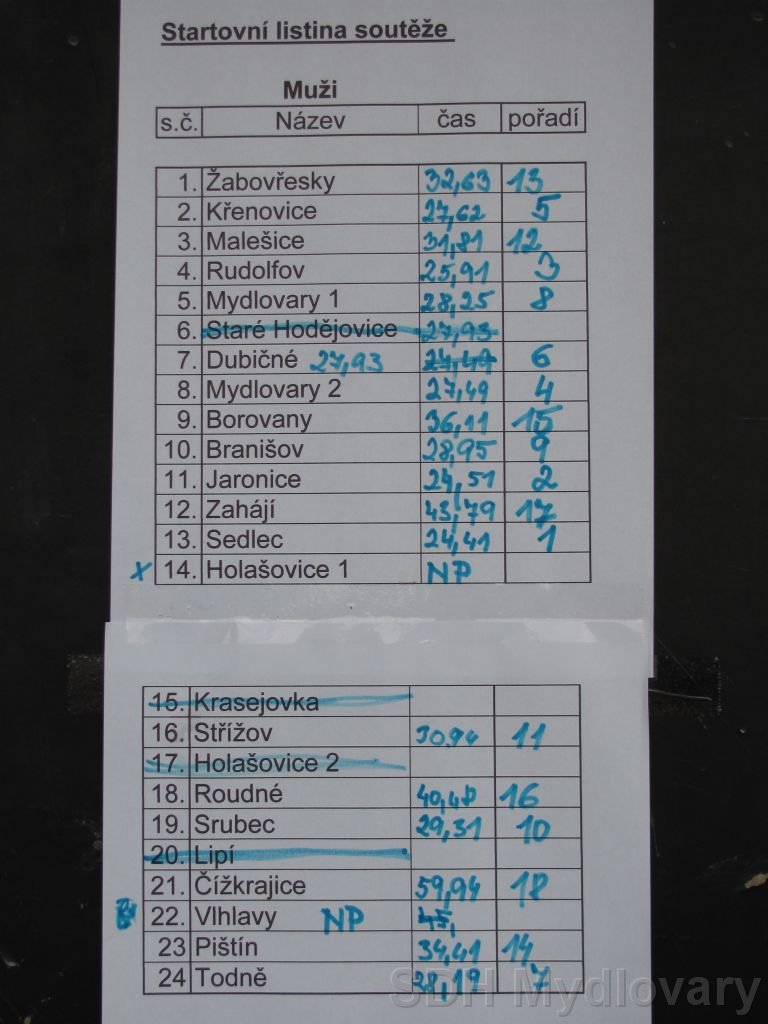 Startovní listina soutěže
Muži
s.č. Název čas pořadí
1. Žabovřesky 32,63 13
2. Křenovice 27,62 5
3. Malešice 31,81 12
4. Rudolfov 25,91 3
5. Mydlovary 1 28,25 8
6. Staré Hodějovice 27,93
7. Dubičné 27,93 27,49 6
8. Mydlovary 2 27,49 4
9. Borovany 36,11 15
10. Branišov 28,95 9
11. Jaronice 24,51 2
12. Zahájí 43,79 17
13. Sedlec 24,41 1
x 14. Holašovice 1 NP
15. Krasejovka
16. Střížov 30.94 11
17. Holašovice 2
18. Roudné 40,48 16
19. Srubec 29,31 10
20. Lipí
21. Čížkrajice 59,94 18
22. Vlhlavy NP 45,
23 Pištín 34,41 14
24 Todně 28,19 7
SDH Mydlovary